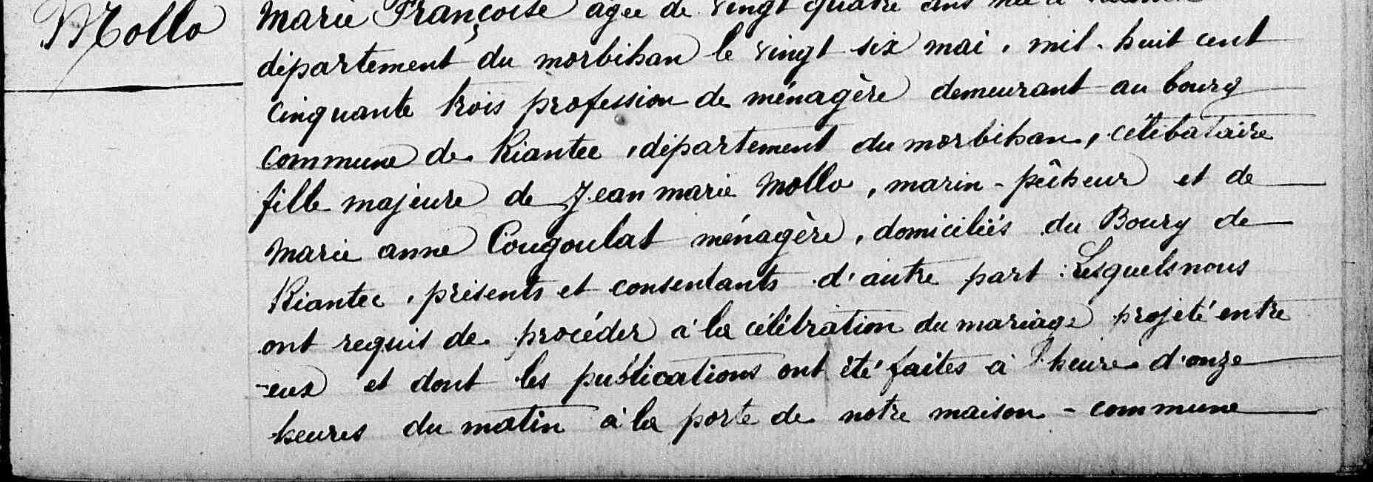 Mollo
Marie Françoise agée de vingt quatre ans née à
département du morbihan le vingt six mai, mil. huit cent
cinquante trois profession de ménagère demeurant au bourg
commune de Riantec, département du morbihan, célibataire
fille majeure de Jean marie Mollo, marin-pêcheur et de
Marie anne Cougoulat ménagère, domiciliés du Bourg de
Riantec, présents et consentants d'autre part : Lesquels nous
ont requis de procéder à la célébration du mariage projeté entre
eux et dont les publications ont été faites à l'heure d'onze
heures du matin à la porte de notre maison-commune